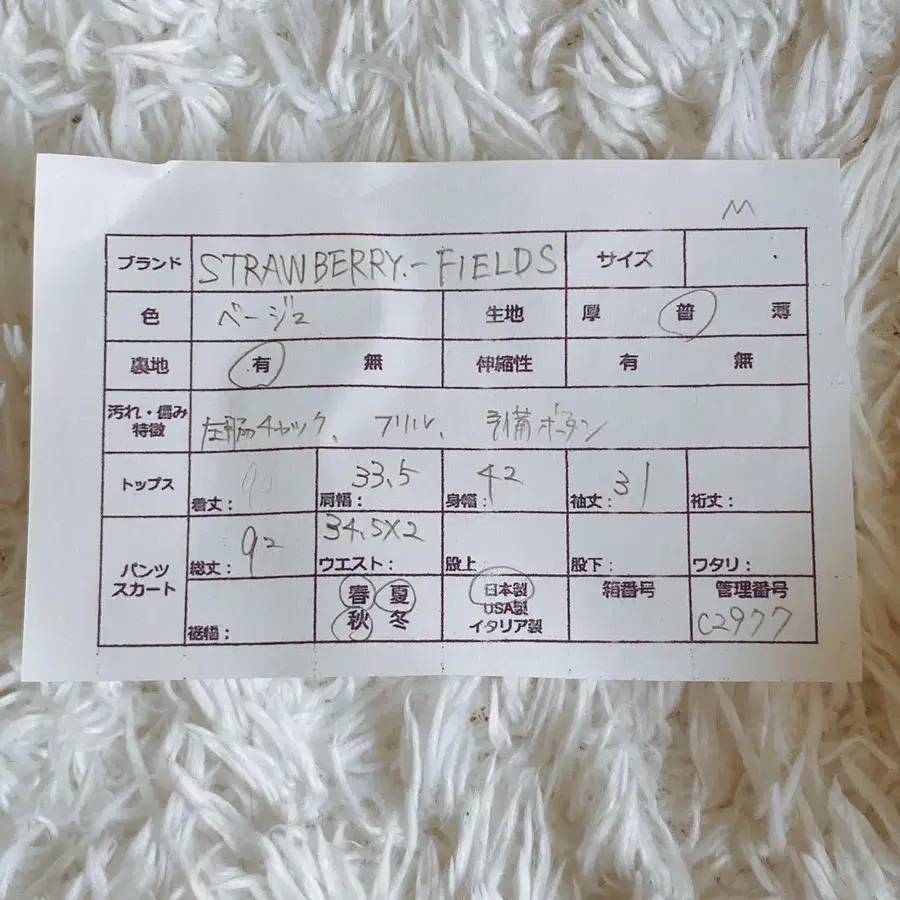 M
ブランド STRAWBERRY.-FIELDS サイズ
色 ベージュ 生地 厚 普 薄
裏地 有 無 伸縮性 有 無
汚れ・傷み
特徴 左脇チャック、フリル、予備ボタン
トップス 着丈: 肩幅: 33.5 身幅: 42 袖丈: 31 裄丈:
パンツ
スカート 総丈: 92 ウエスト: 34.5×2 股上 股下: ワタリ:
裾幅: 春 夏 日本製 箱番号 管理番号
秋 冬 USA製 C2977
イタリア製